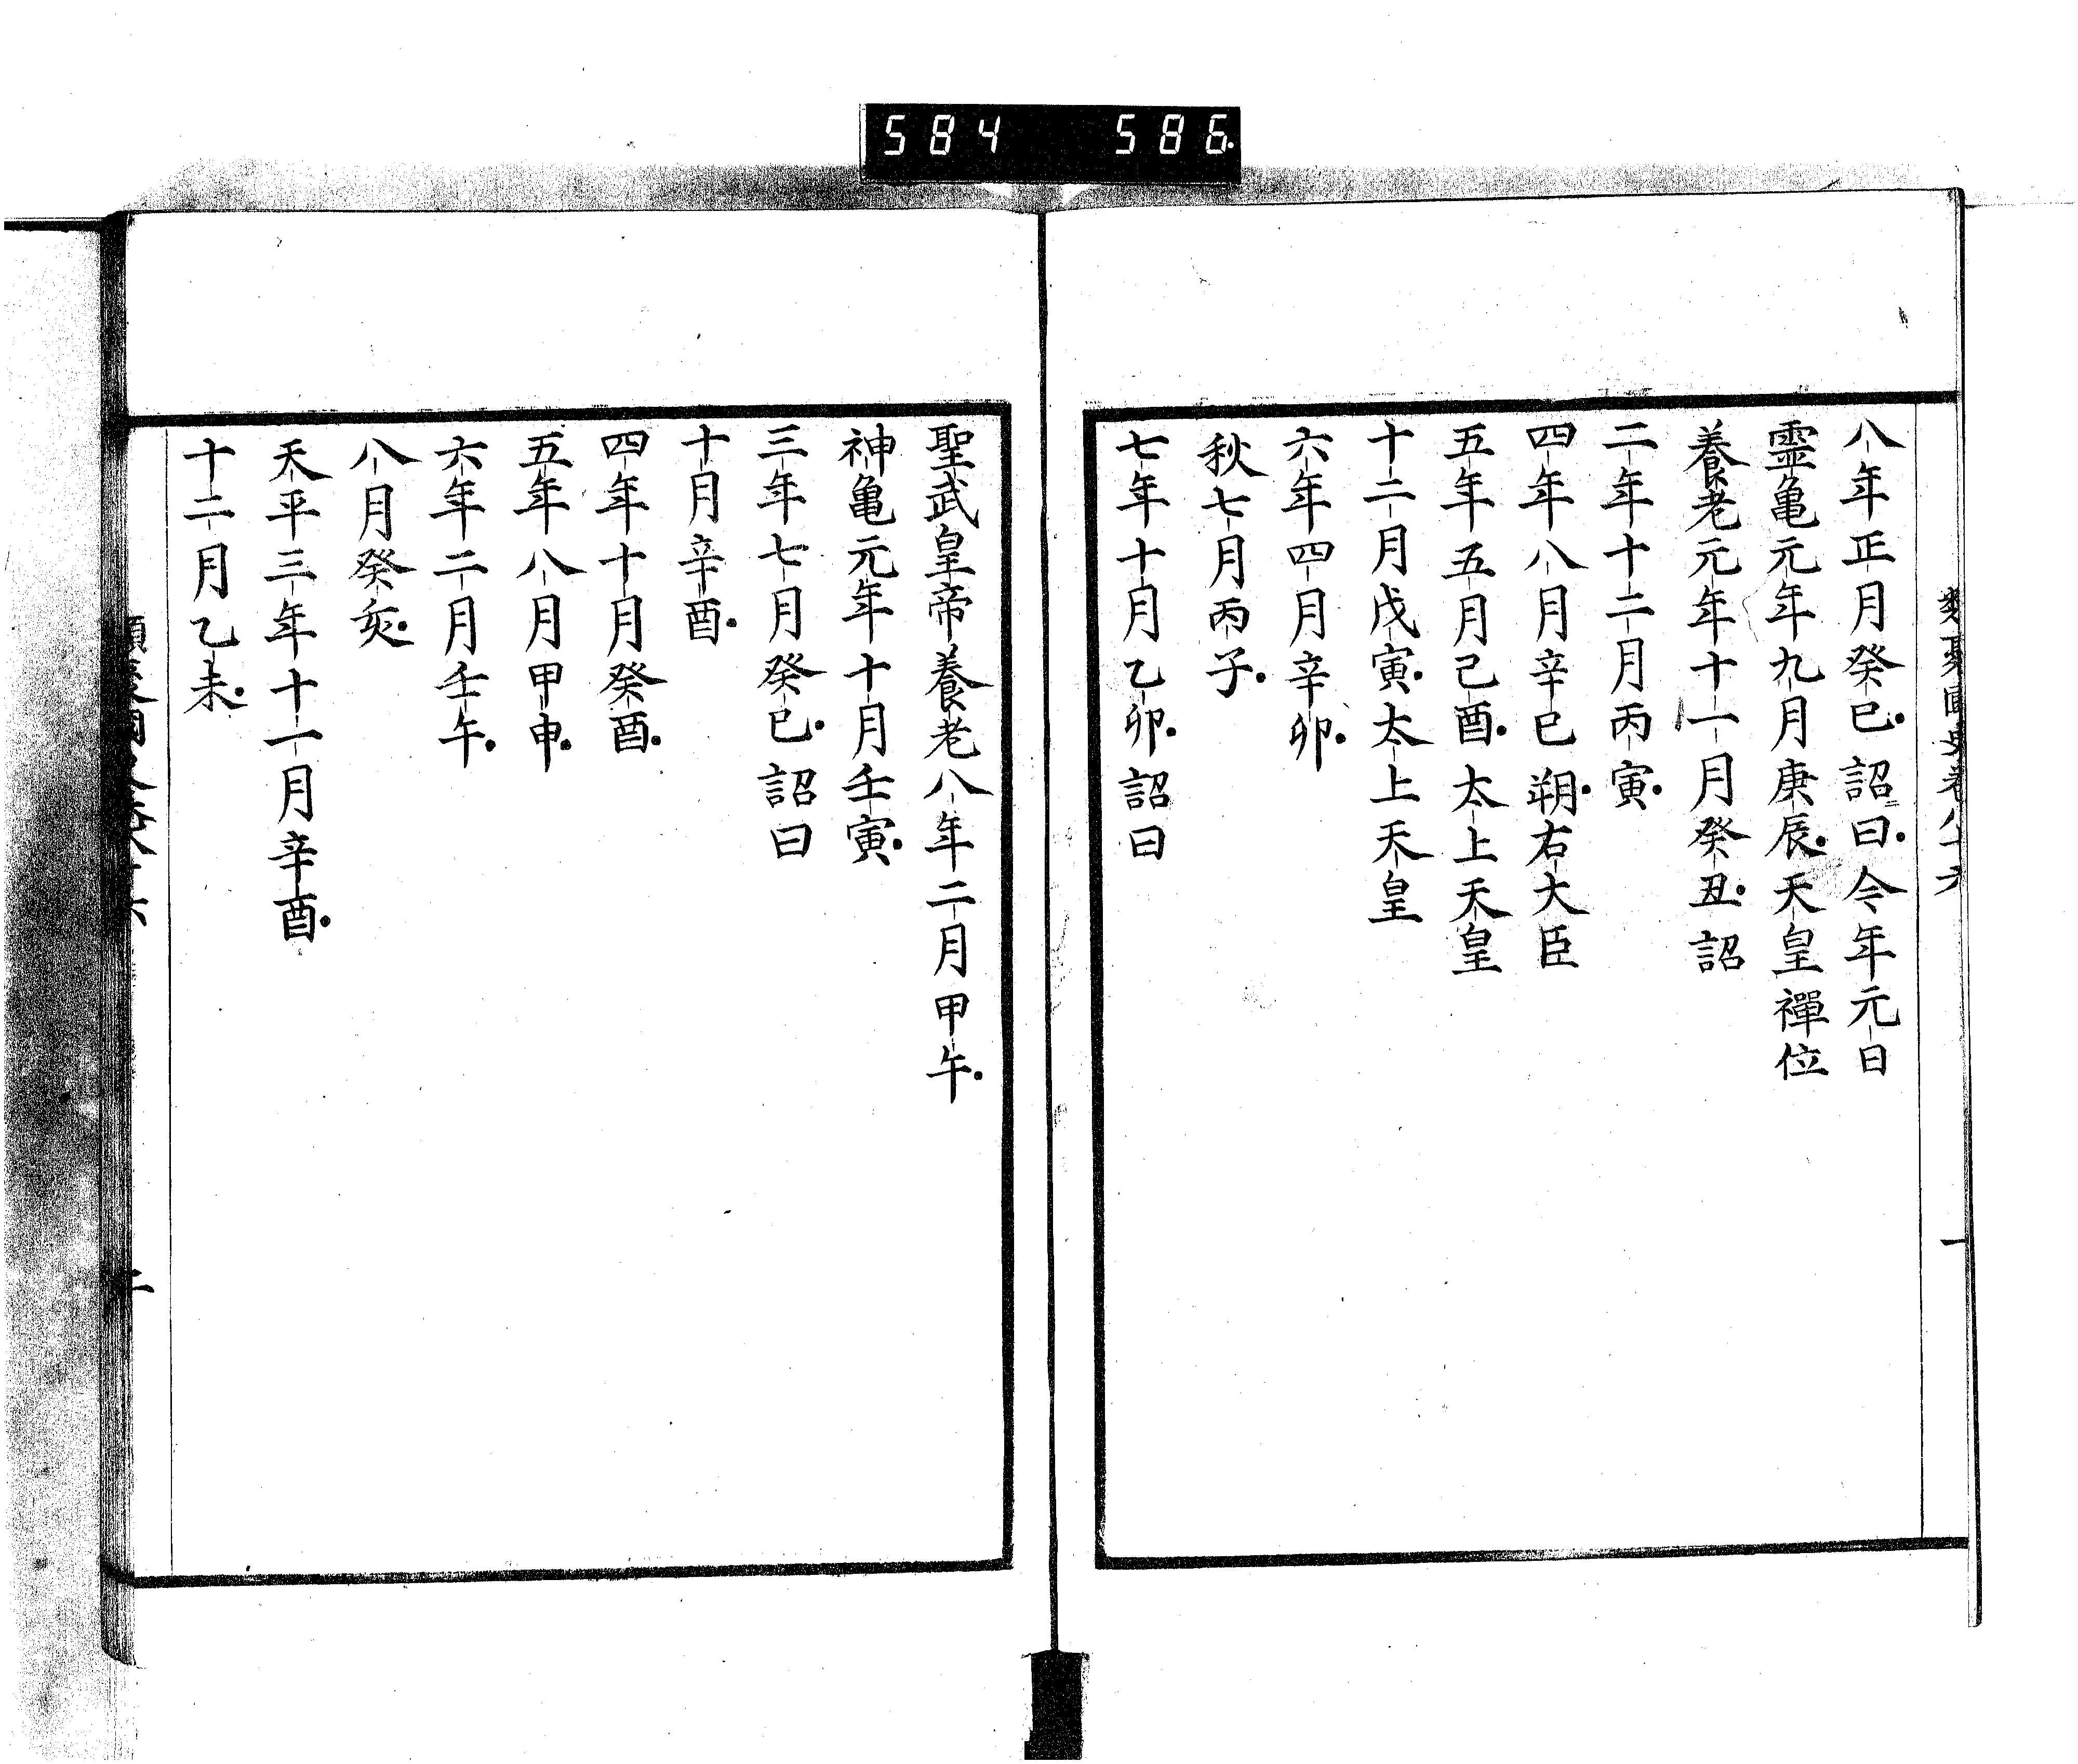 584 586
八年正月癸巳詔曰今年元日
靈亀元年九月庚辰天皇禪位
養老元年十一月癸丑詔
二年十二月丙寅
四年八月辛巳朔右大臣
五年五月己酉太上天皇
十二月戊寅太上天皇
六年四月辛卯
秋七月丙子
七年十月乙卯詔曰
聖武皇帝養老八年二月甲午
神亀元年十月壬寅
三年七月癸巳詔曰
十月辛酉
四年十月癸酉
五年八月甲申
六年二月壬午
八月癸亥
天平三年十一月辛酉
十二月乙未
二